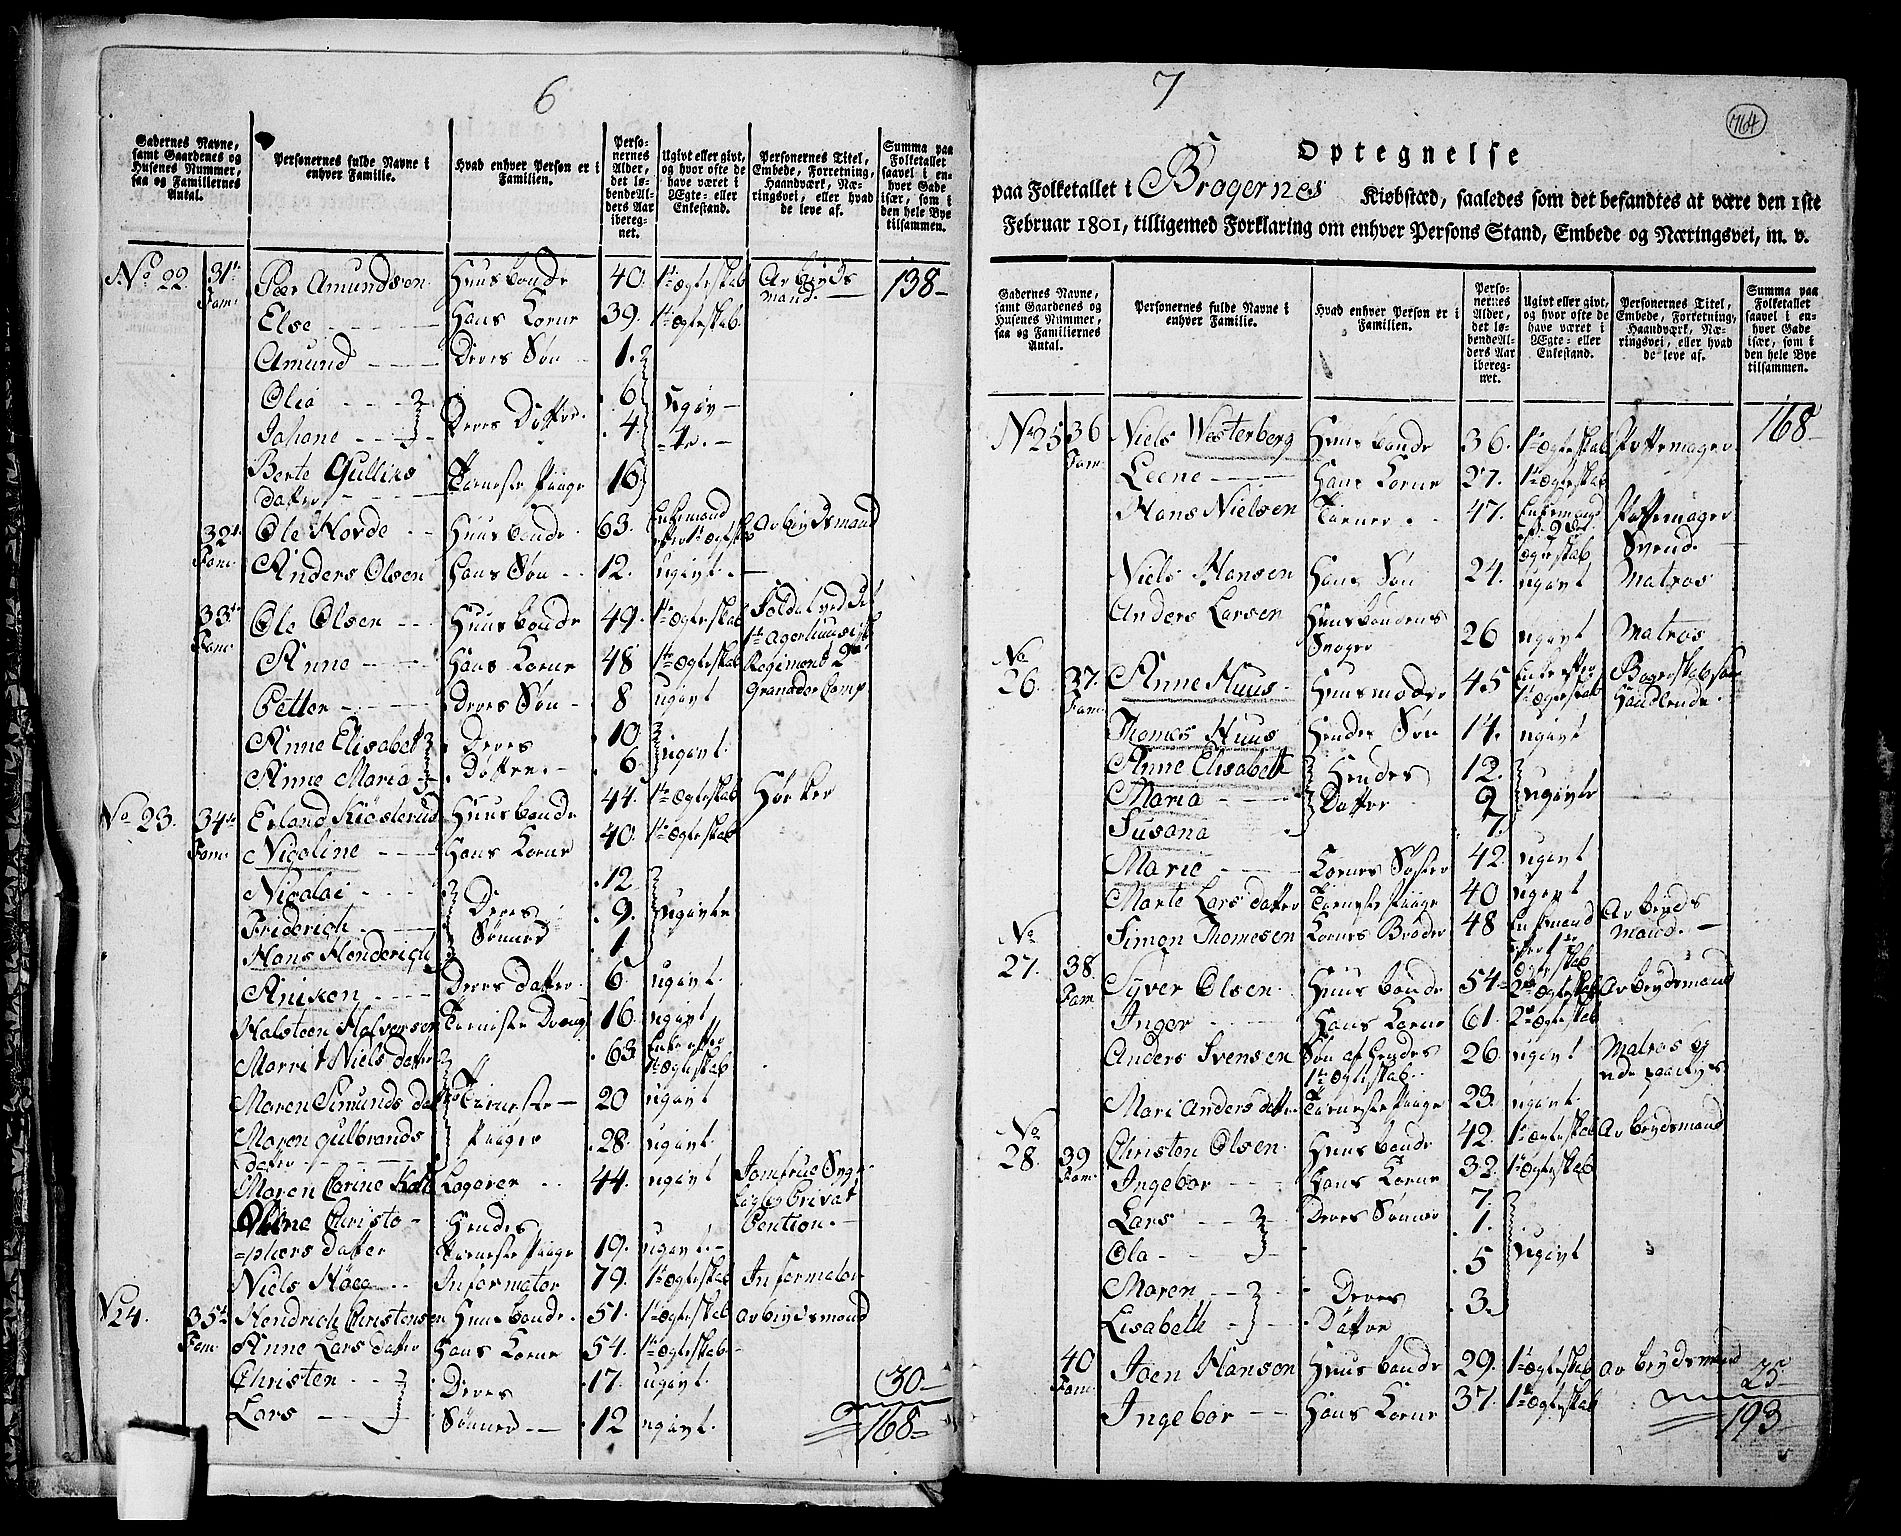 6
Gadernes Navne, samt Gaardenes og Husenes Nummer, saa og Familiernes Antal.
Personernes fulde Navne i enhver Familie.
Hvad enhver Person er i Familien.
Personernes Alder, det løbende Alders Aar iberegnet.
Ugivt eller givt, og hvor ofte de have været i Ægte- eller Enkestand.
Personernes Titel, Embede, Forretning, Haandværk, Næringsvei, eller hvad de leve af.
Summa paa Folketallet saavel i enhver Gade især, som i den hele Bye tilsammen.
No 22. 31te Fam: Pær Amundsen Huusbonde 40. 1te Ægteskab Arbeyds mand. 138
Else Hans Kone 39. 1te Ægteskab
Amund Deres Søn 1.
Olia 6
Johane Deres Døttre 4. ugivte
Berte Gullics datter Tieneste Piige 16
32te Fam: Ole Horde Huusbonde 63. Enkemand efter 1te Ægteskab Arbeydsmand
Anders Olsen Hans Søn 12. ugivt
33te Fam: Ole Olsen Huusbonde 49. 1te Ægteskab Soldat ved det
Anne Hans Kone 48 1te Ægteskab Regiment 2
Petter Deres Søn 8 ugivt Granader Comp
Anne Elisabet Deres 10
Anne Maria Døttre 6 ugivt
No 23. 34te Fam: Erland Kiøsterud Huusbonde 44. 1te Ægteskab Høcker
Nicoline Hans Kone 40. 1te Ægteskab
Nicolai Deres 12
Friderich Sønner 9. ugivte
Hans Henderich 1
Anixen Deres datter 6 ugivt
Halsteen Halversen Tieneste Dreng 16 ugivt
Marrit Niels datter 63 Enke efter 1te Ægteskab
Maren Simunds dat Tieneste 20 ugivt
Maren Gulbrands datter Piiger 28. ugivt
Maren Carine Logerer 44. ugivt Jomfrue
Anne Christophers datter Hendes Tieneste Piige 19. ugivt Pention.
Niels Høeg Informator 79. 1te Ægteskab Informator
No 24. 35te Fam: Hendrich Christensen Huusbonde 51. 1te Ægteskab Arbeydsmand
Anne Lars datter Hans Kone 54. 1te Ægteskab
Christen Deres 17. ugivt
Lars Sønner 12 ugivt
30
168
7
764
Optegnelse
paa Folketallet i Bragernes Kiøbstæd, saaledes som det befandtes at være den 1ste
Februar 1801, tilligemed Forklaring om enhver Persons Stand, Embede og Næringsvei, m. v.
Gadernes Navne, samt Gaardenes og Husenes Nummer, saa og Familiernes Antal.
Personernes fulde Navne i enhver Familie.
Hvad enhver Person er i Familien.
Personernes Alder, det løbende Alders Aar iberegnet.
Ugivt eller givt, og hvor ofte de have været i Ægte- eller Enkestand.
Personernes Titel, Embede, Forretning, Haandværk, Næringsvei, eller hvad de leve af.
Summa paa Folketallet saavel i enhver Gade især, som i den hele Bye tilsammen.
No 25 36 Fam: Niels Westerberg Huusbonde 36. 1te Ægteskab Pottemager 168
Leene Hans Kone 27. 1te Ægteskab
Hans Nielsen Tiener 47. Enkemand Ægteskab Pottemager Svend
Niels Hansen Hans Søn 24. ugivt Matros
Anders Larsen Huusbondens Svoger 26 ugivt Matros
No 26. 37. Fam: Anne Huus Huusmoder 45 Enke efter 1te Ægteskab Handlende
Thomes Huus Hendes Søn 14. ugivt
Anne Elisabeth Hendes 12.
Maria Døttre 9 ugivte
Susana 7.
Marie Kones Søster 42. ugivt
Marte Lars datter Tieneste Piige 40 ugivt
Simon Thomesen Kones Broder 48 Enkemand efter 1te Ægteskab Arbeyds mand.
No 27. 38. Fam: Syver Olsen Huusbonde 54 2de Ægteskab Arbeydsmand
Inger Hans Kone 61. 2de Ægteskab
Anders Svensen Søn af Hendes 1te Ægteskab 26 ugivt Matros og
Mari Anders datter Tieneste Piige 23. ugivt
No 28. 39 Fam: Christen Olsen Huusbonde 42. 1te Ægteskab Arbeydsmand
Ingebor Hans Kone 32. 1te Ægteskab
Lars Deres Sønner 7.
Ola 1.
Maren Deres 5 ugivt
Lisabeth Døttre 3.
40 Fam: Joen Hansen Huusbonde 29. 1te Ægteskab Arbeydsmand
Ingebor Hans Kone 37. 1te Ægteskab
25
193